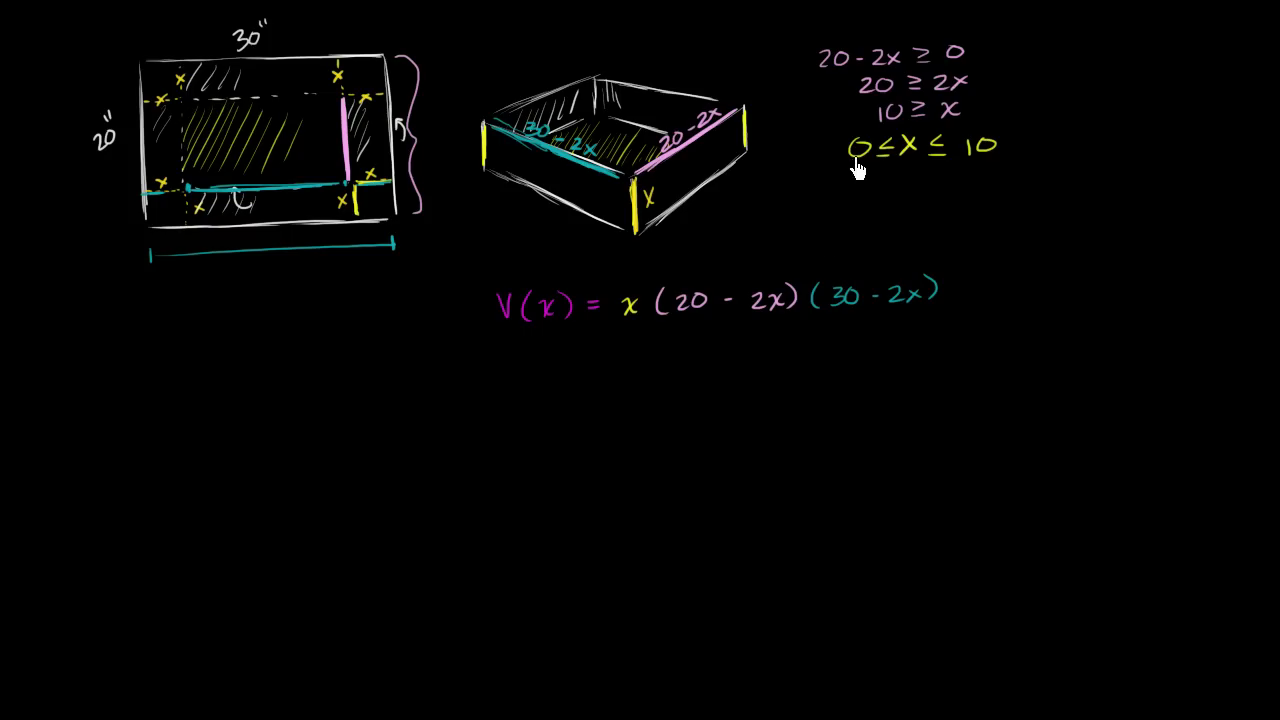 30"
20"
x x
x x
x x
x x
30 - 2x
20 - 2x
x
20 - 2x ≥ 0
20 ≥ 2x
10 ≥ x
0 ≤ x ≤ 10
V(x) = x (20 - 2x) (30 - 2x)